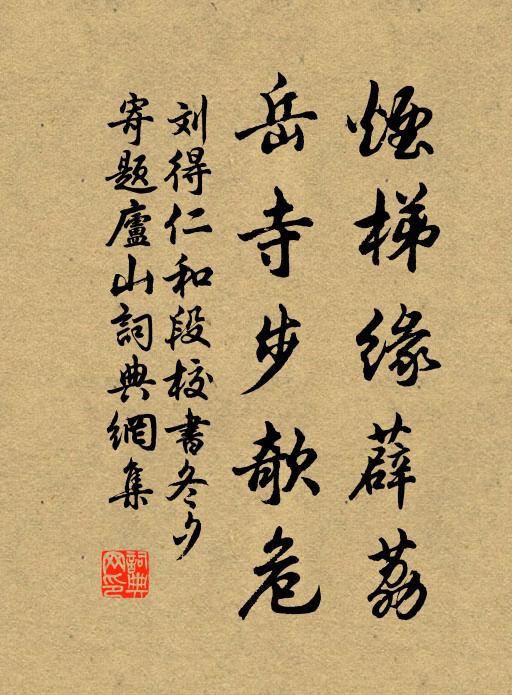 煙梯緣薜荔
岳寺步欹危
刘得仁和段校書冬夕
寄題廬山詞典網集
詞典网印